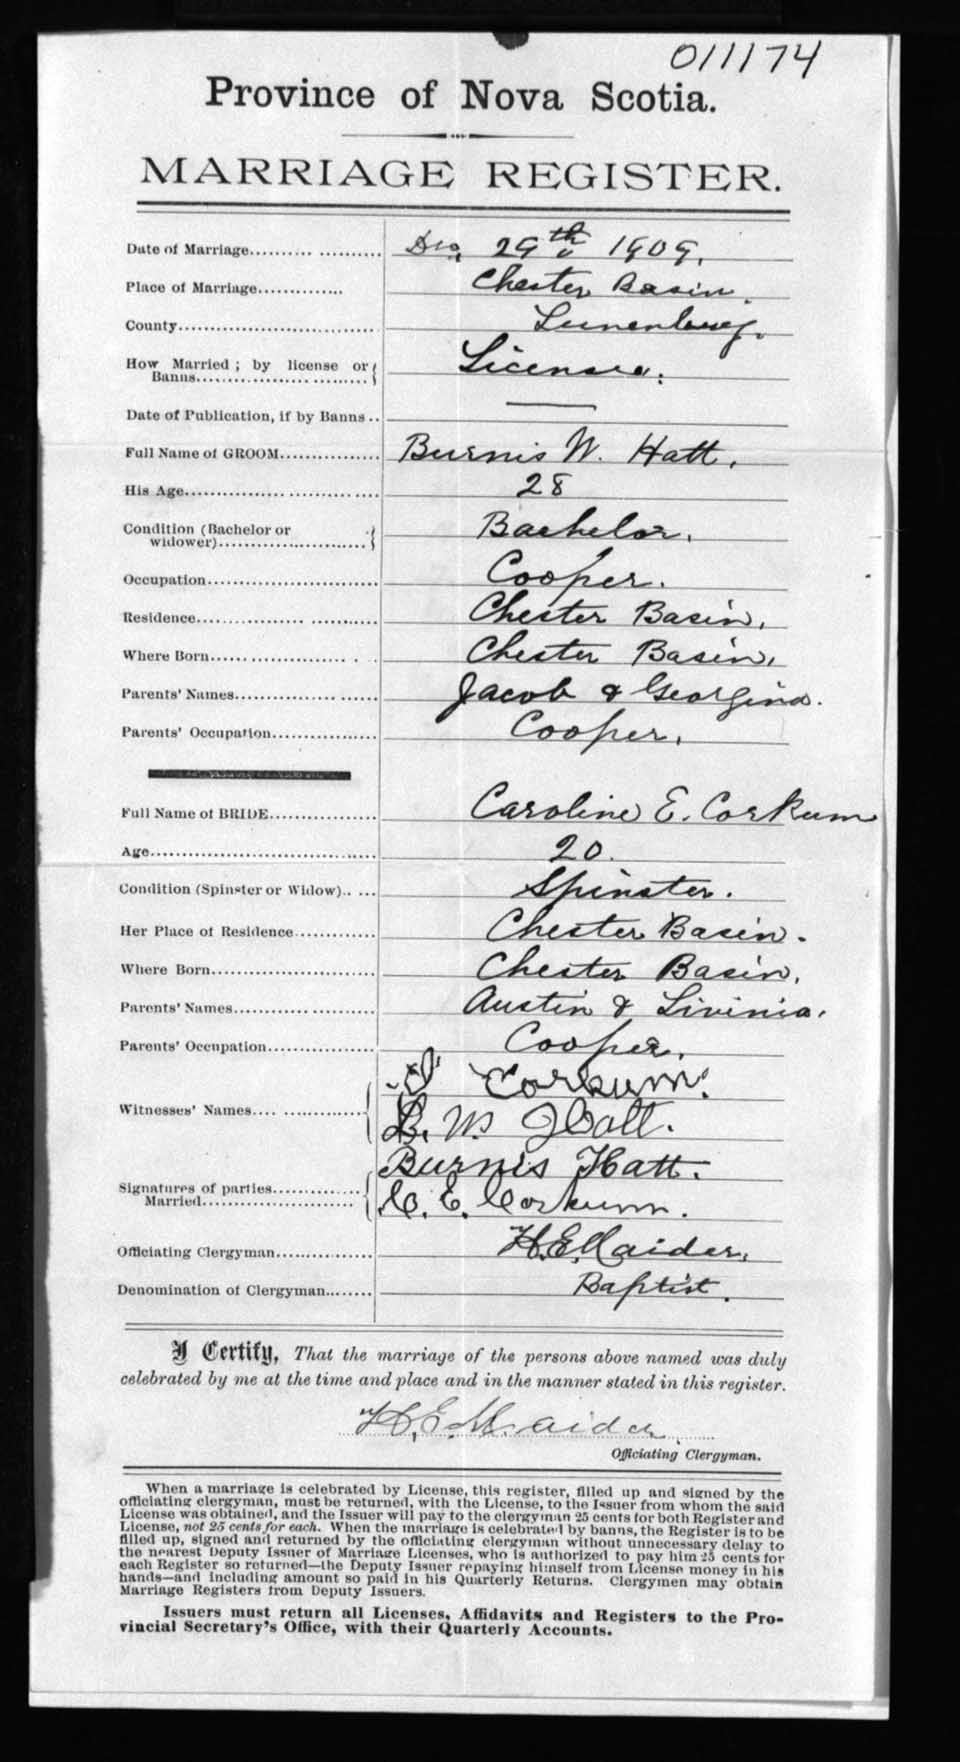 011174
Province of Nova Scotia.
MARRIAGE REGISTER.
Date of Marriage.......... ........... Dec. 29th 1909.
Place of Marriage.............. Chester Basin.
County............................. Lunenburg.
How Married ; by license or
Banns.................. ......... License.
Date of Publication, if by Banns .. ——
Full Name of GROOM................ Burnis W. Hatt.
His Age.................. ......... .... 28
Condition (Bachelor or
widower)........................ Bachelor.
Occupation........................... Cooper.
Residence................ ........... Chester Basin.
Where Born...................... . . Chester Basin.
Parents' Names................. ...... Jacob & Georgina.
Parents' Occupation................. Cooper.
Full Name of BRIDE................. Caroline E. Corkum
Age.................................... 20.
Condition (Spinster or Widow).. ... Spinster.
Her Place of Residence............. Chester Basin.
Where Born.......................... Chester Basin.
Parents' Names............ ........... Austin & Livinia.
Parents' Occupation................. Cooper.
Corkum.
Witnesses' Names.... ..............
W. Hatt.
Burnis Hatt.
Signatures of parties..............
Married........................ C. E. Corkum.
Officiating Clergyman............... H. E. Maider.
Denomination of Clergyman......... Baptist.
I Certify, That the marriage of the persons above named was duly
celebrated by me at the time and place and in the manner stated in this register.
H. E. Maider.
Officiating Clergyman.
When a marriage is celebrated by License, this register, filled up and signed by the
officiating clergyman, must be returned, with the License, to the Issuer from whom the said
License was obtained, and the Issuer will pay to the clergyman 25 cents for both Register and
License, not 25 cents for each. When the marriage is celebrated by banns, the Register is to be
filled up, signed and returned by the officiating clergyman without unnecessary delay to
the nearest Deputy Issuer of Marriage Licenses, who is authorized to pay him 25 cents for
each Register so returned—the Deputy Issuer repaying himself from License money in his
hands—and including amount so paid in his Quarterly Returns. Clergymen may obtain
Marriage Registers from Deputy Issuers.
Issuers must return all Licenses, Affidavits and Registers to the Pro-
vincial Secretary's Office, with their Quarterly Accounts.